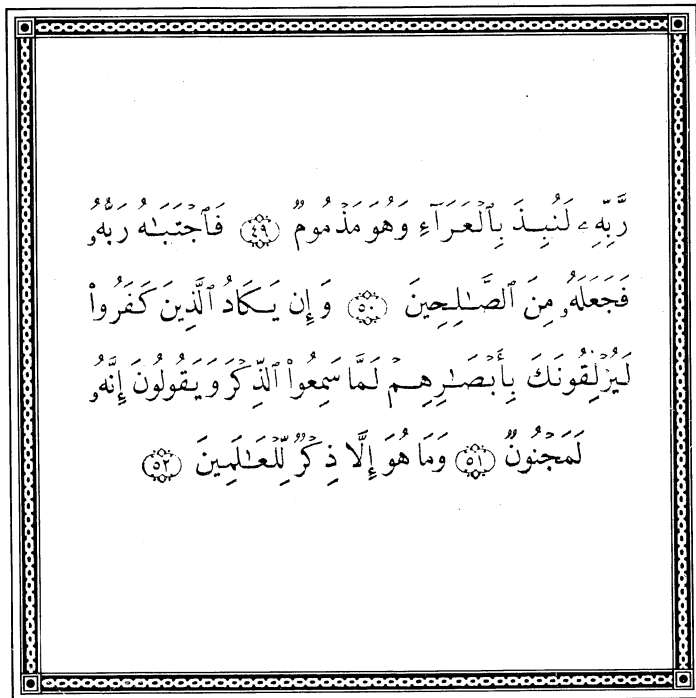 رَّبِّهِۦ لَنُبِذَ بِٱلْعَرَآءِ وَهُوَ مَذْمُومٌ ۝٤٩ فَٱجْتَبَٰهُ رَبُّهُۥ
فَجَعَلَهُۥ مِنَ ٱلصَّٰلِحِينَ ۝٥٠ وَإِن يَكَادُ ٱلَّذِينَ كَفَرُوا۟
لَيُزْلِقُونَكَ بِأَبْصَٰرِهِمْ لَمَّا سَمِعُوا۟ ٱلذِّكْرَ وَيَقُولُونَ إِنَّهُۥ
لَمَجْنُونٌ ۝٥١ وَمَا هُوَ إِلَّا ذِكْرٌ لِّلْعَٰلَمِينَ ۝٥٢